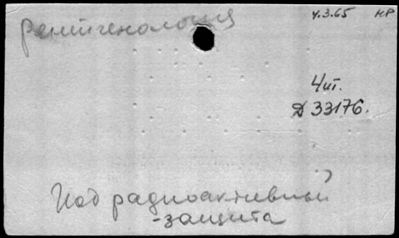 рентгенология
4.3.65 НР
Чит.
Д 33176.
Иод радиоактивный
-защита